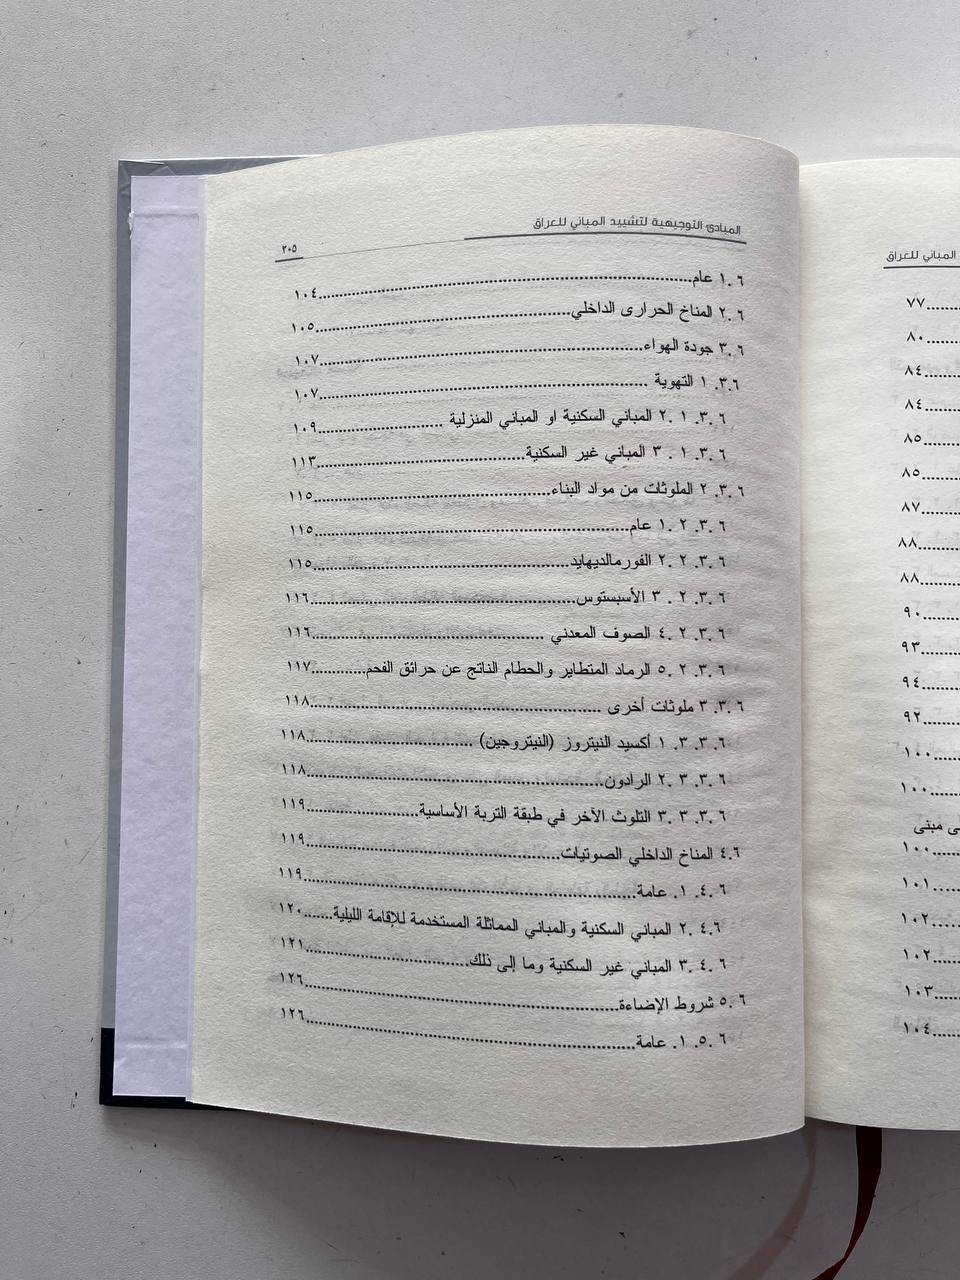 المباني للعراق
٧٧
٨٠
٨٤
٨٤
٨٥
٨٥
٨٧
٨٨
٨٨
٩٠
٩٣
٩٤
٩٢
١٠٠
١٠٠
مبنى
١٠٠
١٠١
١٠٢
١٠٢
١٠٣
١٠٤
المبادئ التوجيهية لتشييد المباني للعراق
٢٠٥
٦ .١ عام...................١٠٤
٦ .٢ المناخ الحرارى الداخلي...................١٠٥
٦ .٣ جودة الهواء...................١٠٧
٦.٣. ١ التهوية ...................١٠٧
٦ .٣. ١ .٢ المباني السكنية او المباني المنزلية ...................١٠٩
٦ .٣. ١ . ٣ المباني غير السكنية...................١١٣
٦ .٣. ٢ الملوثات من مواد البناء...................١١٥
٦ .٣. ٢ .١ عام...................١١٥
٦ .٣. ٢ .٢ الفورمالديهايد...................١١٥
٦ .٣. ٢ . ٣ الأسبستوس...................١١٦
٦ .٣. ٢ .٤ الصوف المعدني ...................١١٦
٦ .٣. ٢ .٥ الرماد المتطاير والحطام الناتج عن حرائق الفحم...................١١٧
٦ .٣. ٣ ملوثات أخرى ...................١١٨
٦ .٣. ٣. ١ أكسيد النيتروز (النيتروجين) ...................١١٨
٦ .٣. ٣ .٢ الرادون...................١١٨
٦ .٣. ٣ .٣ التلوث الآخر في طبقة التربة الأساسية...................١١٩
٤.٦ المناخ الداخلي الصوتيات...................١١٩
٦ .٤. ١. عامة...................١١٩
٤.٦. ٢ المباني السكنية والمباني المماثلة المستخدمة للإقامة الليلية.......١٢٠
٦ .٤. ٣ المباني غير السكنية وما إلى ذلك...................١٢١
٦ .٥ شروط الإضاءة...................١٢٦
٦ .٥. ١. عامة...................١٢٦